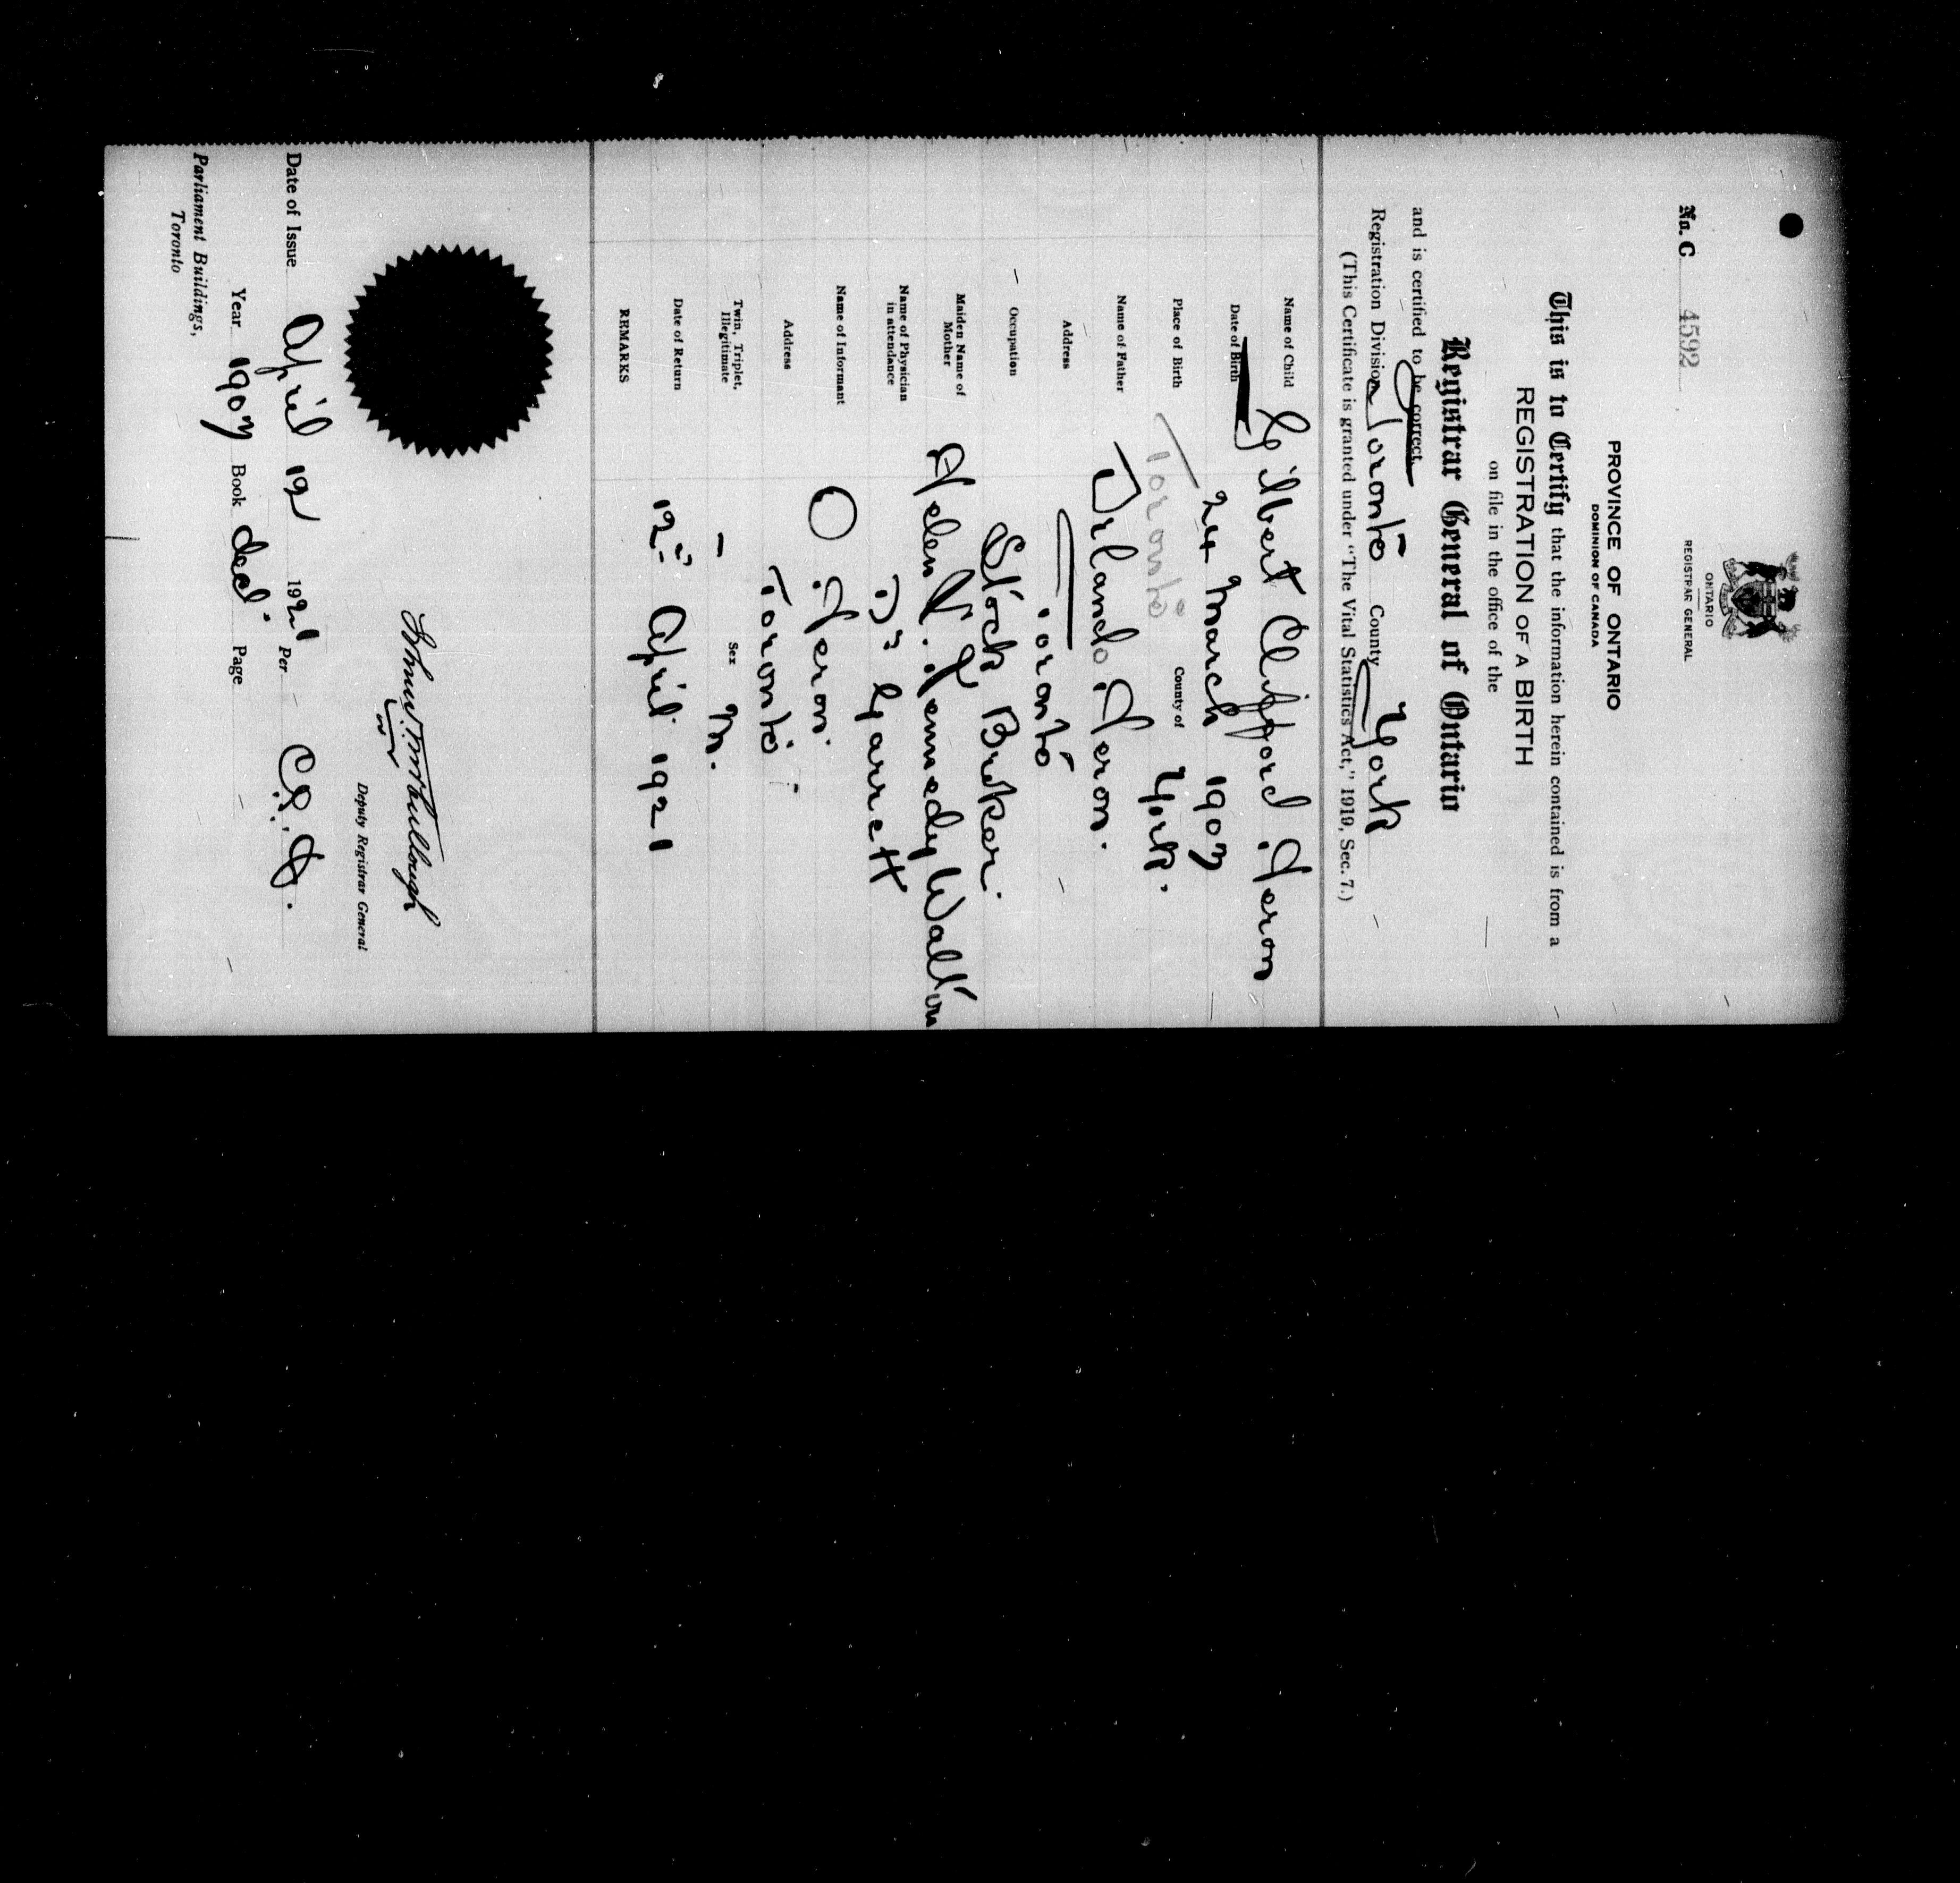 ONTARIO
REGISTRAR GENERAL
No. C 4592
PROVINCE OF ONTARIO
DOMINION OF CANADA
This is to Certify that the information herein contained is from a
REGISTRATION OF A BIRTH
on file in the office of the
Registrar General of Ontario
and is certified to be correct.
Registration Division Toronto County York
(This Certificate is granted under "The Vital Statistics Act," 1919, Sec. 7.)
Name of Child Gilbert Clifford Heron
Date of Birth 24 March 1907
Place of Birth Toronto County of York.
Name of Father Orlando Heron.
Address Toronto
Occupation Stock Broker.
Maiden Name of Mother Helen Kennedy Walton
Name of Physician in attendance Dr Garrett
Name of Informant O Heron.
Address Toronto
Twin, Triplet, Illegitimate – Sex M.
Date of Return 12" April 1921
REMARKS
Deputy Registrar General
Date of Issue April 12 1921 Per
Year 1907 Book decl. Page
Parliament Buildings,
Toronto